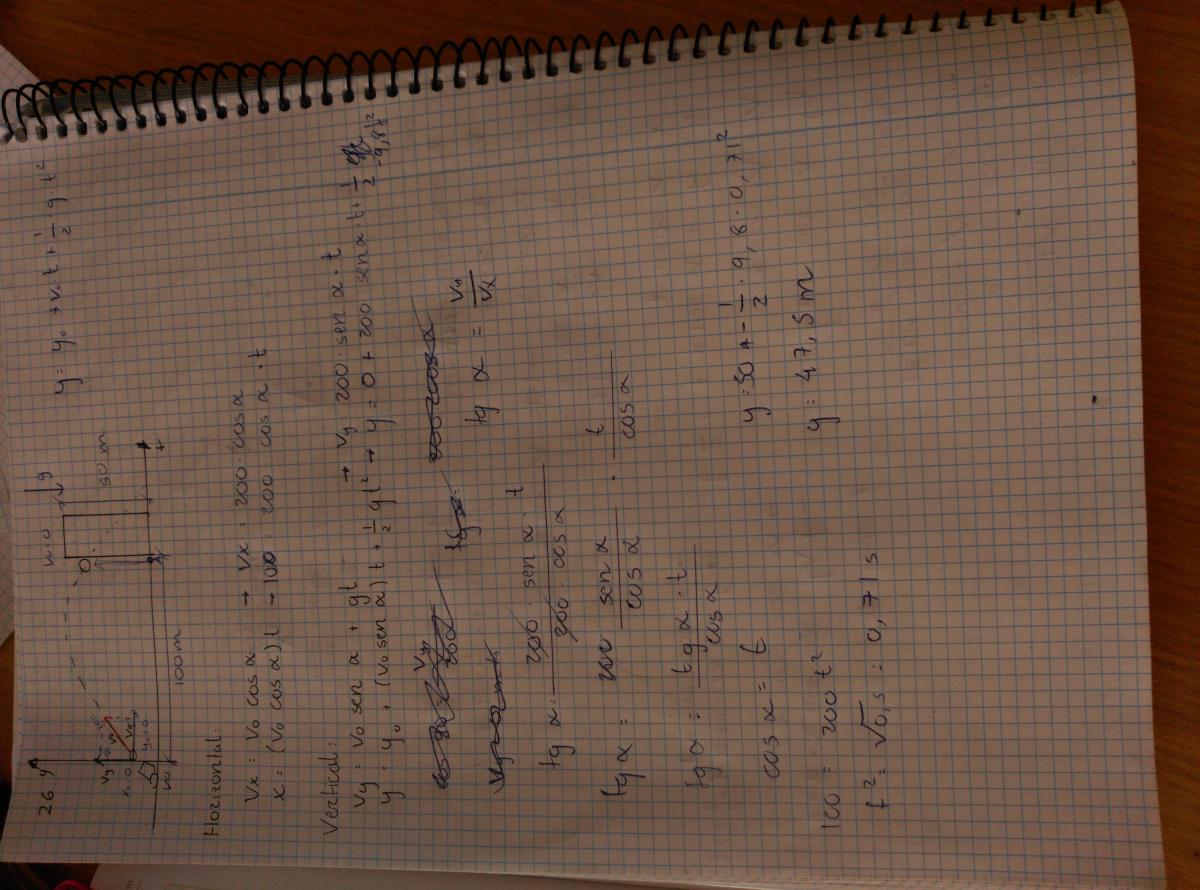 26
y
y = y₀ + v₀ t + 1/2 g · t²
v₀ = 0
g
50 m
100 m
Horizontal:
Vx = V₀ cos α → Vx = 200 · cos α
x = (V₀ cos α) t → 100 = 200 cos α · t
Vertical:
Vy = V₀ sen α + gt → Vy 200 · sen α · t
y = y₀ + (V₀ sen α) t + 1/2 gt² → y = 0 + 200 sen α · t + 1/2 -9,8 t²
tg α = Vy/Vx
tg α = 200 · sen α · t / 200 · cos α
tg α = 200 sen α / cos α · t / cos α
tg α = tg α · t / cos α
cos α = t
100 = 200 t²
t² = √0,5 = 0,71 s
y = 50 - 1/2 · 9,8 · 0,71²
y = 47,5 m